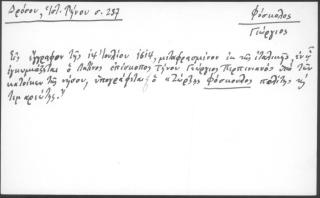 Δρόσου, Ἱστ. Τήνου σ. 237
Φόσκολος
Γεώργιος
Εἰς ἔγγραφον τῆς 14 Ἰουλίου 1614, μεταφρασμένον ἐκ τῆς ἰταλικῆς, ἐν ᾧ
ὁ Λατῖνος ἐπίσκοπος Τήνου Γεώργιος Περπινιανός ὑπό τῶν
κατοίκων τῆς νήσου, ὑπογράφεται ὁ "Ζώρτζης Φόσκολος πολίτης
"